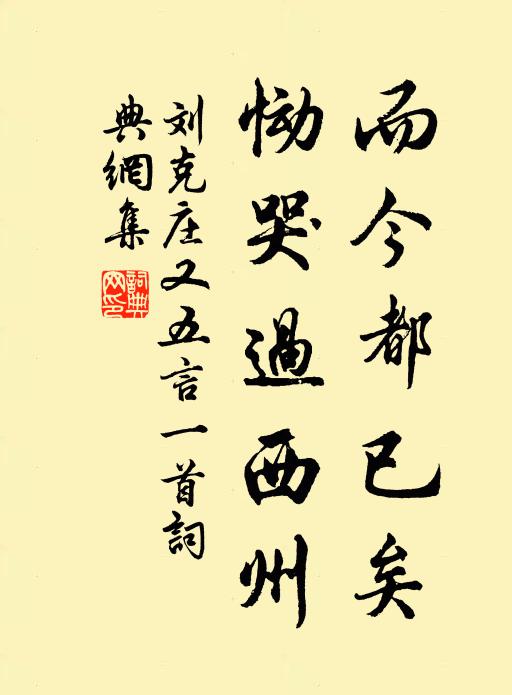 而今都已矣
恸哭過西州
刘克庄又五言一首詞
典網集
詞典
网印